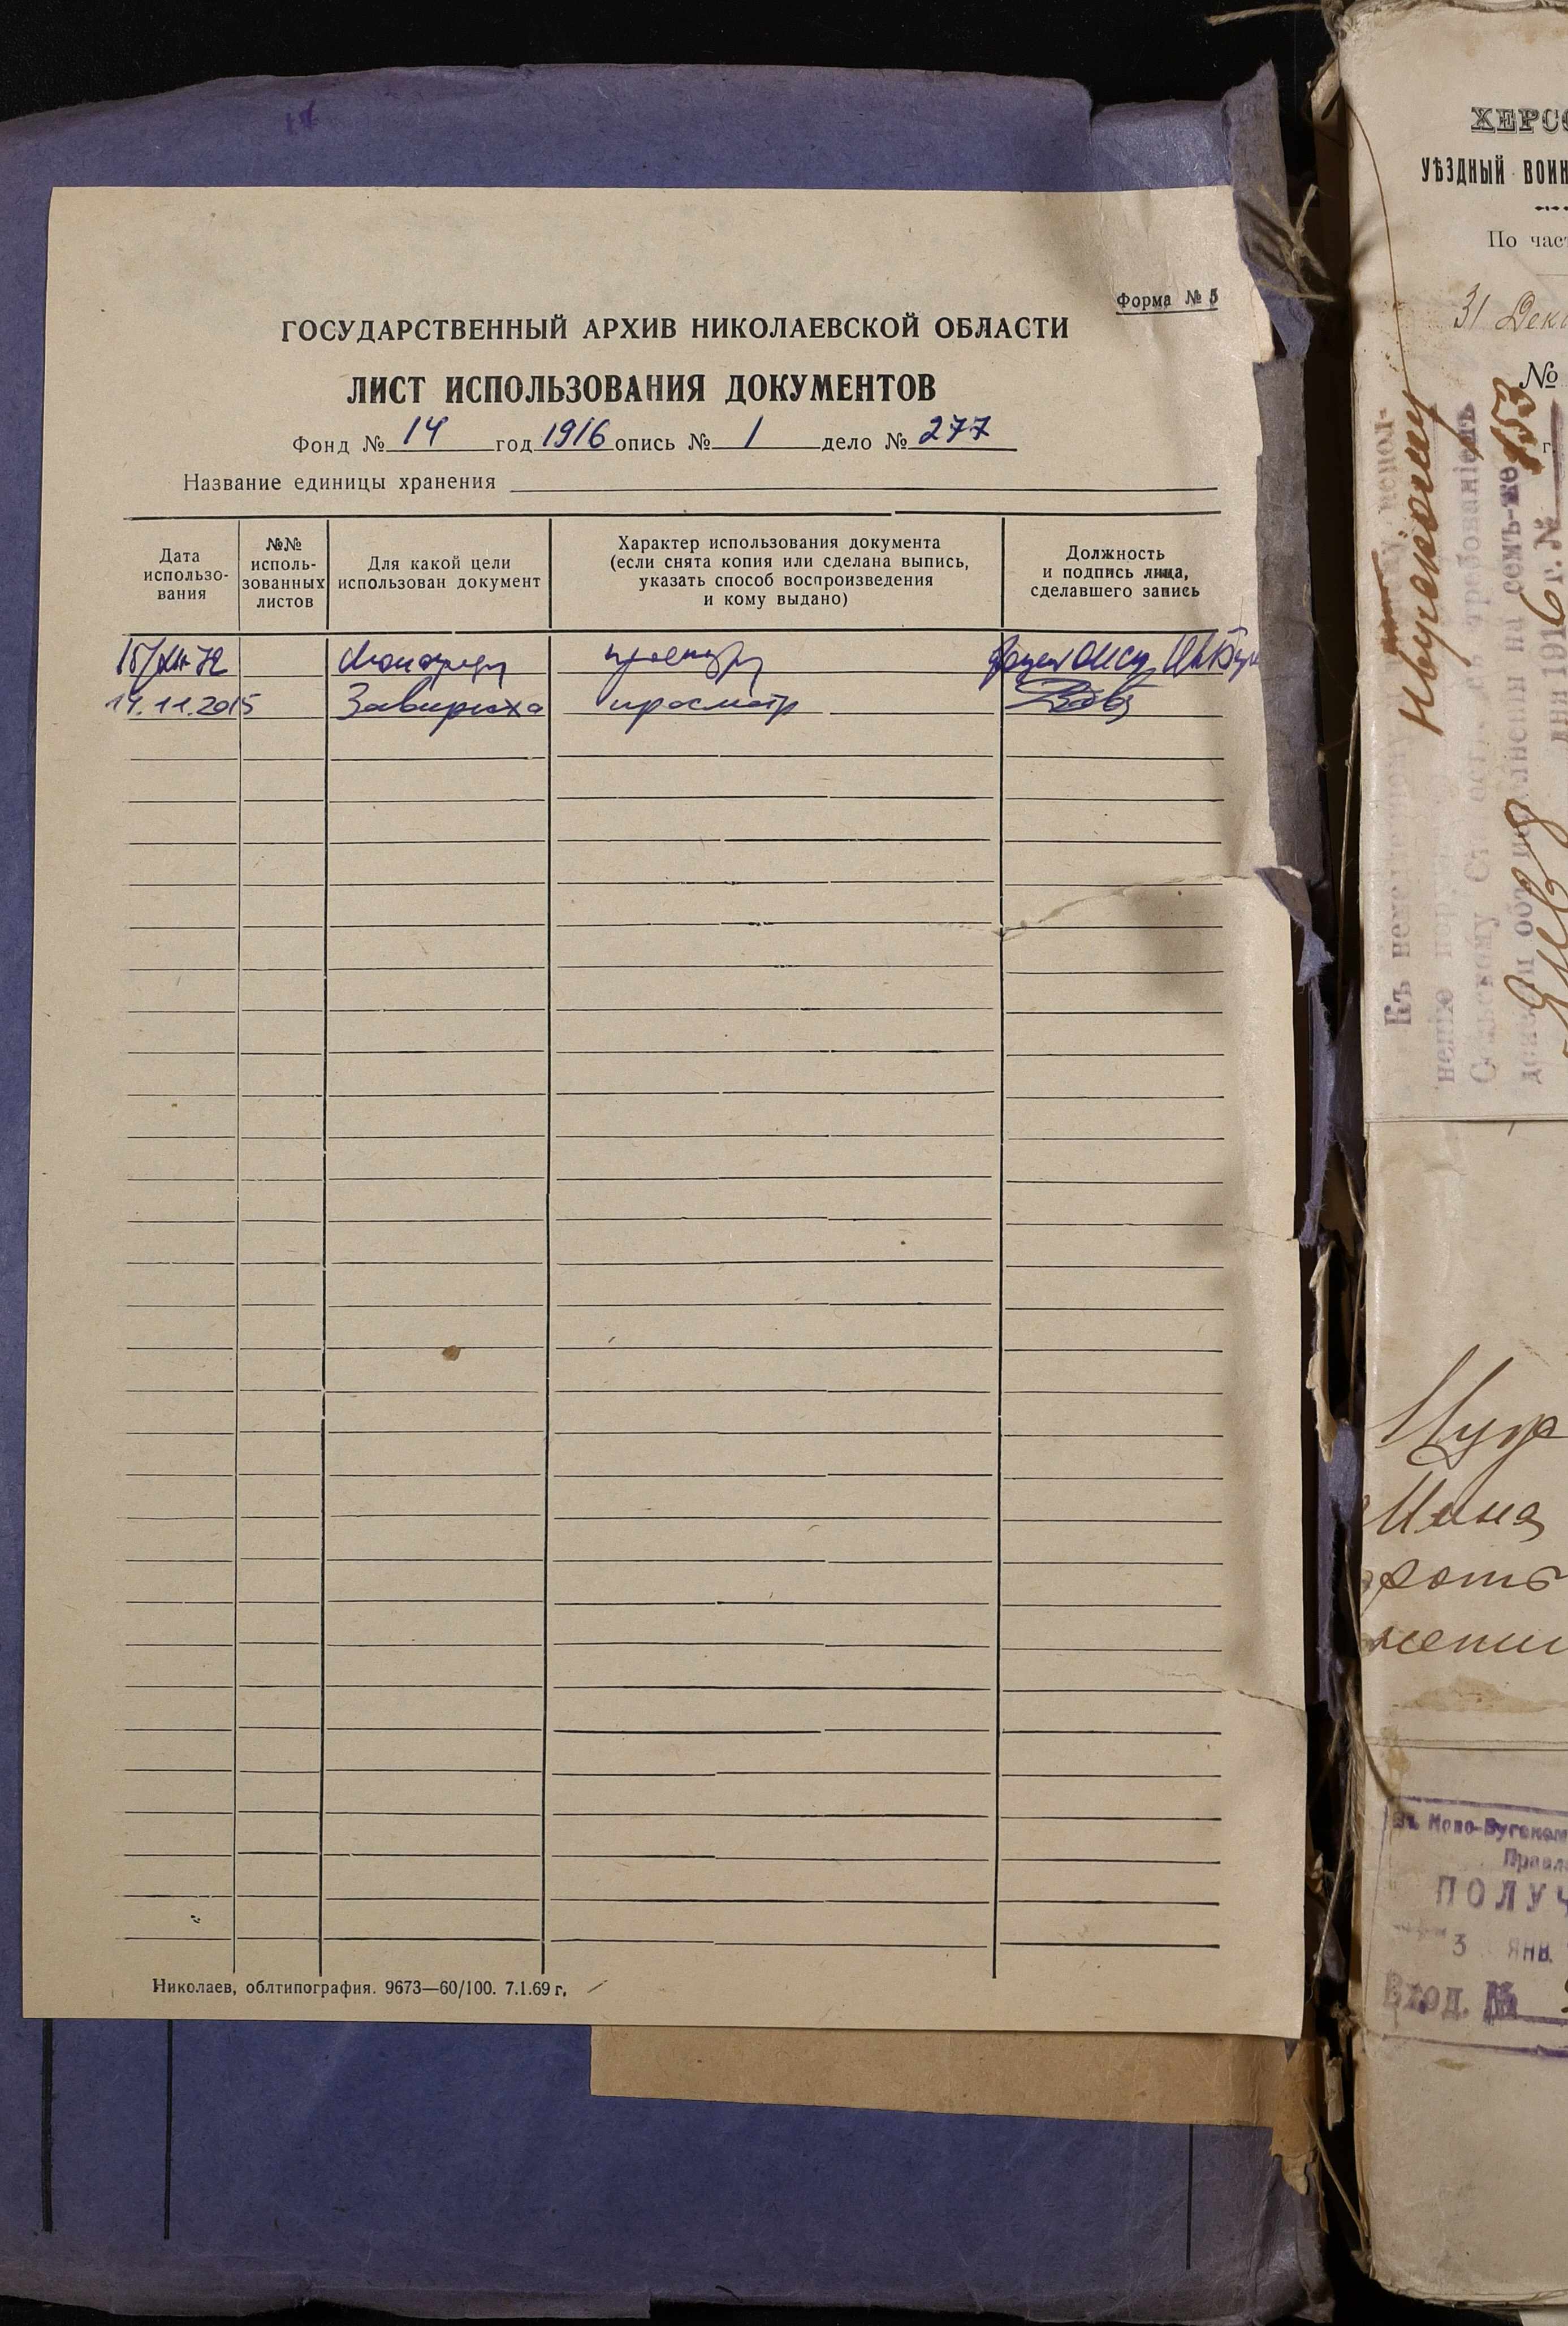 Форма № 5
ГОСУДАРСТВЕННЫЙ АРХИВ НИКОЛАЕВСКОЙ ОБЛАСТИ
ЛИСТ ИСПОЛЬЗОВАНИЯ ДОКУМЕНТОВ
Фонд № 14 год 1916 опись № 1 дело № 277
Название единицы хранения
Дата использо-вания
№№ исполь-зованных листов
Для какой цели использован документ
Характер использования документа
(если снята копия или сделана выпись,
указать способ воспроизведения
и кому выдано)
Должность
и подпись лица,
сделавшего запись
просмотр
14.11.2015 Завирюха просмотр
Николаев, облтипография. 9673—60/100. 7.1.69 г.
ХЕРСО
УѢЗДНЫЙ ВОИН
По част
31 Дека
№
153
Къ
Нбугскому
1916 г. №
Мина
Въ Ново-Бугском
Правл
ПОЛУЧ
3 ЯНВ.
Вход. №